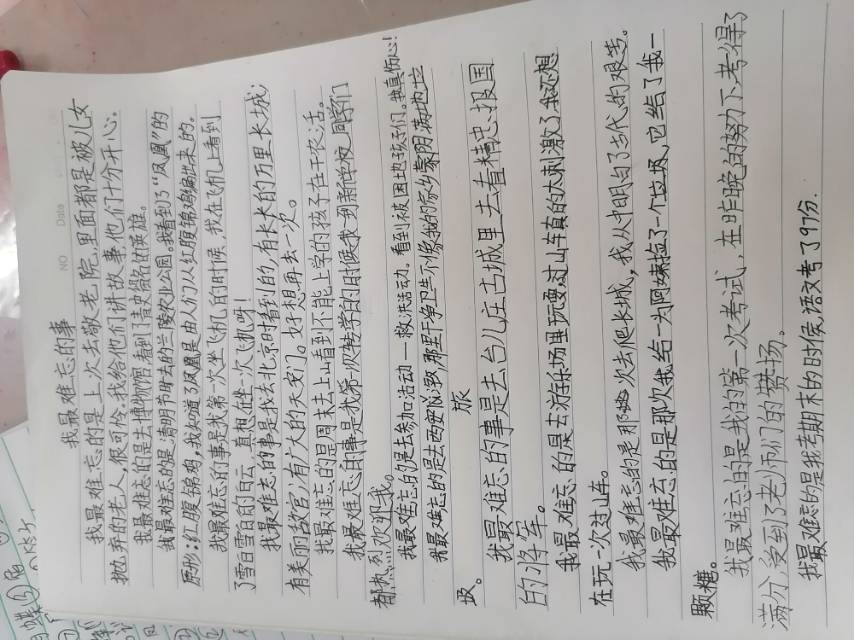 NO
Date
我最难忘的事
我最难忘的是上次去敬老院,里面都是被儿女
抛弃的老人,很可怜,我给他们讲故事他们十分开心。
我最难忘的是去博物馆看到了青史留名的英雄。
我最难忘的是清明节时去的兰陵农业公园。我看到了“凤凰”的
原形:红腹锦鸡,我知道了凤凰是由人们从红腹锦鸡编出来的。
我最难忘的事是我第一次坐飞机的时候,我在飞机上看到
了雪白雪白的白云,真想在坐一次飞机呀!
我最难忘的事是我去北京时看到的,有长长的万里长城;
有美丽的故宫;有广大的天安门。好想再去一次。
我最难忘的是周末去上山看到不能上学的孩子在干农活。
我最难忘的事是我第一次转学的时候我到新学校同学们
都热烈欢迎我。
我最难忘的是去参加活动一救济活动,看到被困地孩子们。我真伤心!
我最难忘的是去西安旅激,那里干净卫生不像我的家乡蒙阴满地垃
圾。
旅
我最难忘的事是去台儿庄古城里去看精忠报国
的将军。
我最难忘的是去游乐场里玩耍过山车真的太刺激了我还想
在玩一次过山车。
我最难忘的是那次去爬长城,我从中明白了古代的艰苦。
我最难忘的是那次我给一为阿姨捡了一个垃圾,它给了我一
颗糖。
我最难忘的是我的第一次考试,在昨晚的努力下,考得了
满分,受到了老师们的赞扬。
我最难忘的是我考期末的时候,语文考了97分.